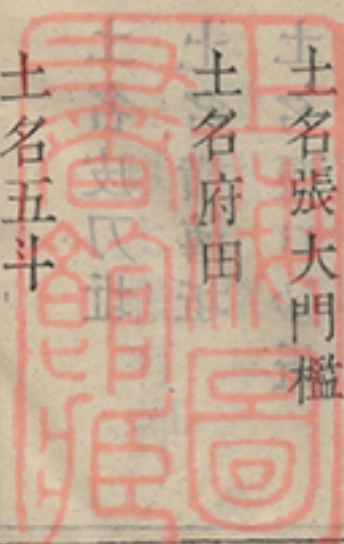 土名張大門檻
土名府田
土名五斗